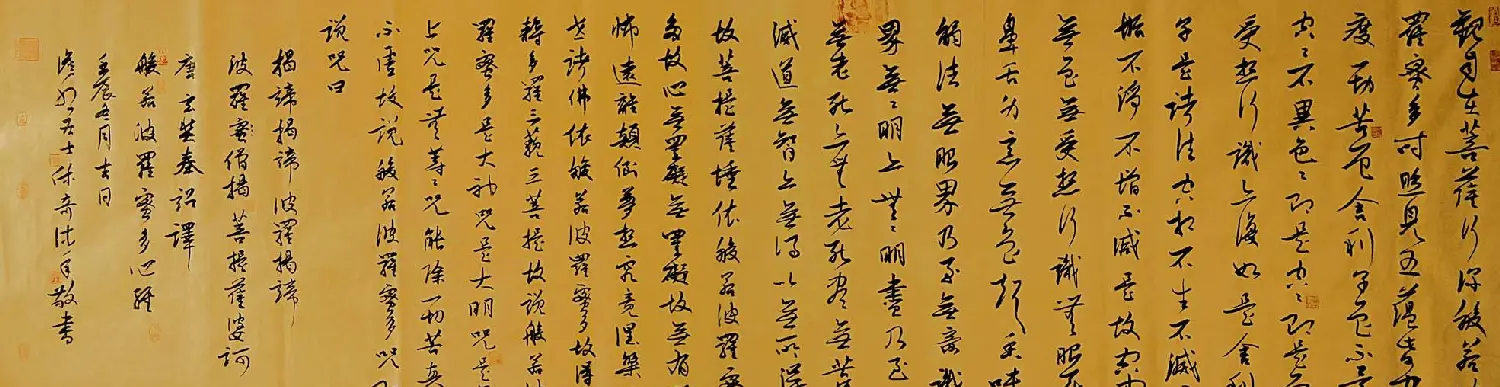 觀自在菩薩行深般若
羅蜜多時照見五蘊皆
度一切苦厄舍利子色不異
空々不異色々即是空々即是
受想行識亦復如是舍利
子是諸法空相不生不滅
垢不淨不增不減是故空中
無色無受想行識無眼耳
鼻舌身意無色聲香味
觸法無眼界乃至無意識
界無々明亦無々明盡乃至
無老死亦無老死盡無苦
滅道無智亦無得以無所得
故菩提薩埵依般若波羅蜜
多故心無罣礙無罣礙故無有
怖遠離顛倒夢想究竟涅槃
世諸佛依般若波羅蜜多故得
耨多羅三藐三菩提故說般若
羅蜜多是大神咒是大明咒是
上咒是無等々咒能除一切苦真
不虛故說般若波羅蜜多咒
說咒曰
揭諦揭諦波羅揭諦
波羅蜜僧揭菩提薩婆訶
唐玄奘奉詔譯
般若波羅蜜多心經
壬辰五月吉日
居士沐手敬書